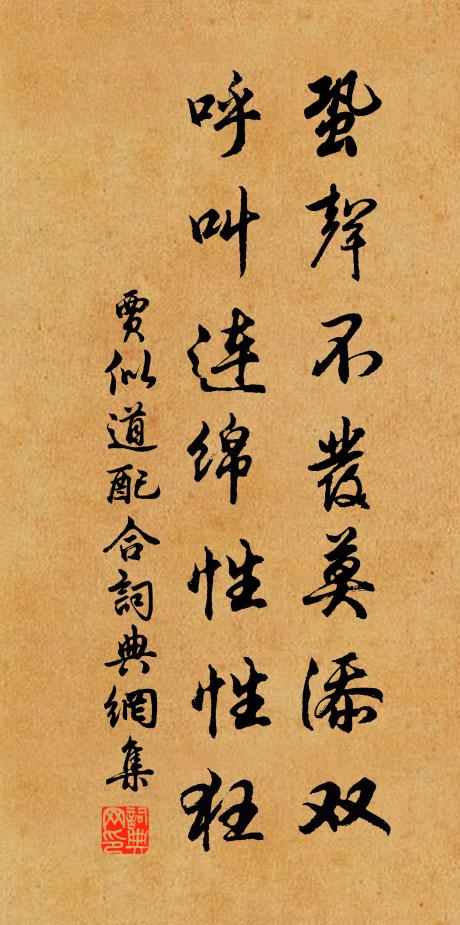 蛩聲不發莫添双
呼叫连绵性性狂
賈似道配合詞典網集
詞典网印